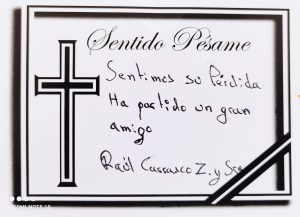 Sentido Pésame
Sentimos su Pérdida
Ha partido un gran
amigo
Raúl Carrasco Z. y Sra